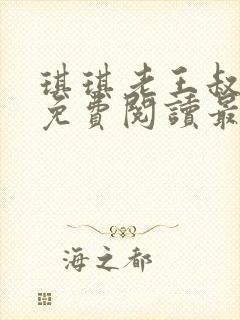 琪琪老王叔
免費閱讀最
海之都